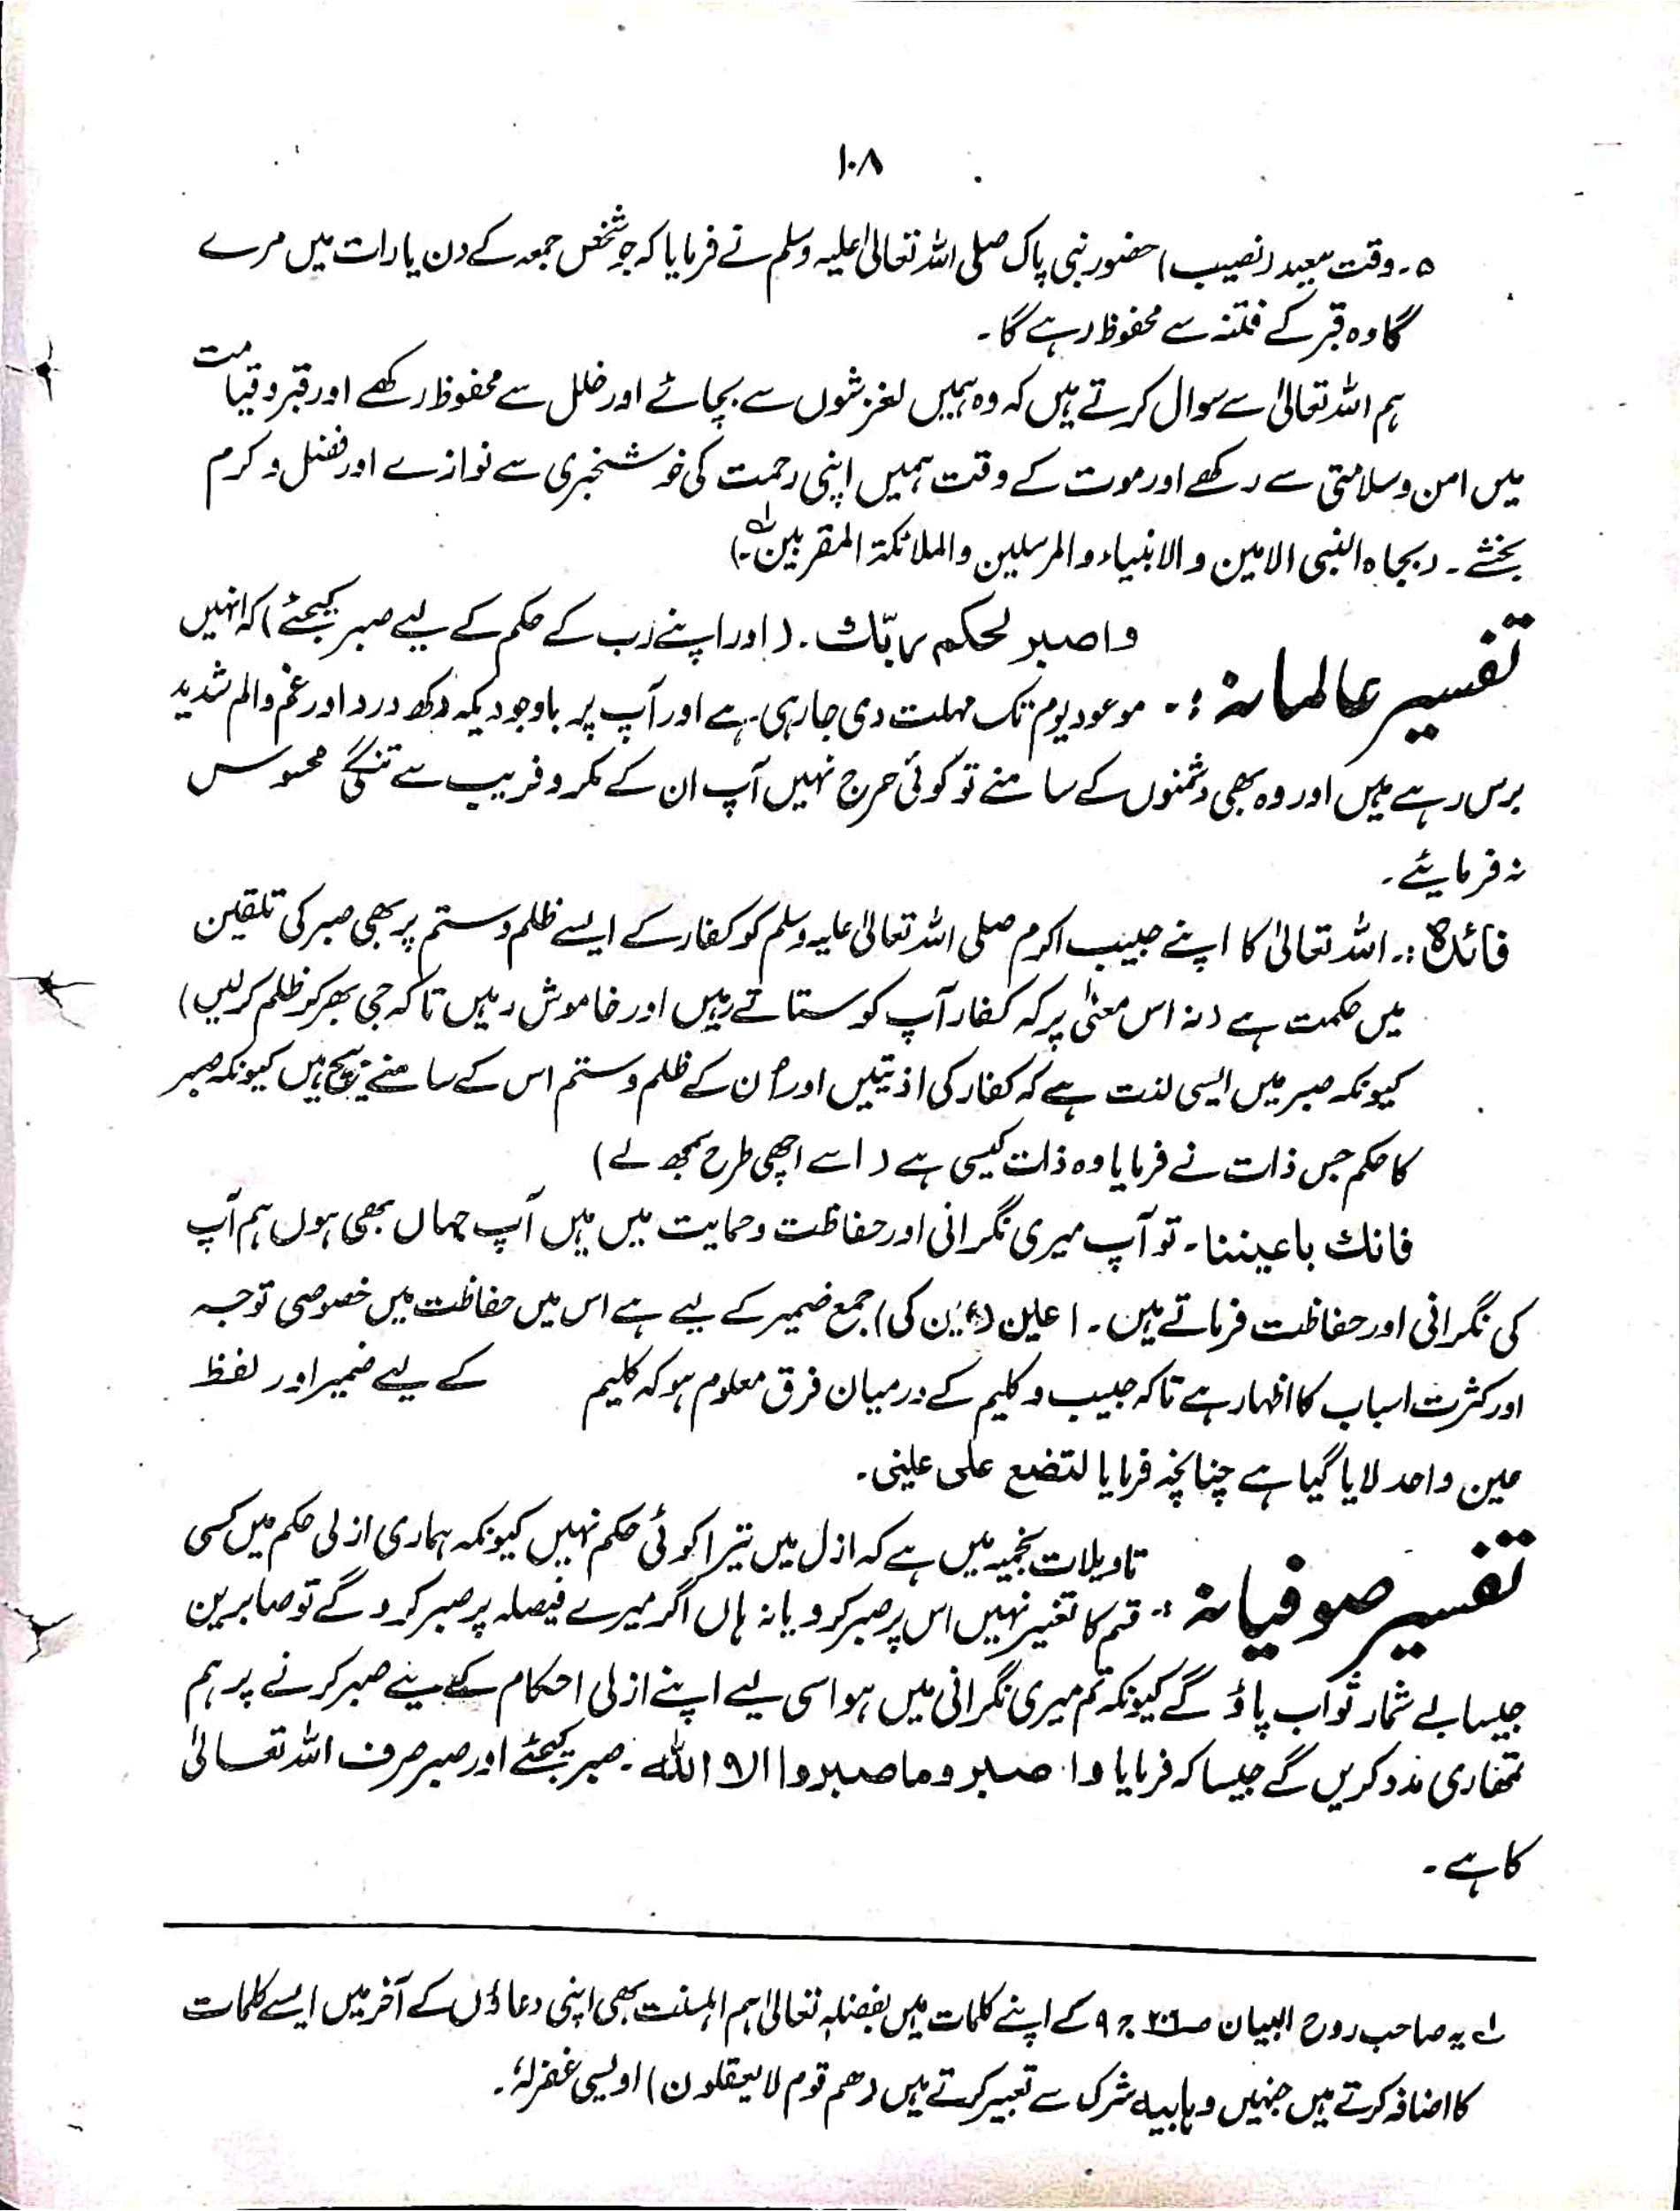 ۱۰۸
۵۔ وقت سعید (نصیب) حضور نبی پاک صلی اللہ تعالیٰ علیہ وسلم نے فرمایا کہ جو شخص جمعہ کے دن یا رات میں مرے
گا وہ قبر کے فتنہ سے محفوظ رہے گا۔
ہم اللہ تعالیٰ سے سوال کرتے ہیں کہ وہ ہمیں لغزشوں سے بچائے اور خلل سے محفوظ رکھے اور قبر و قیامت
میں امن و سلامتی سے رکھے اور موت کے وقت ہمیں اپنی رحمت کی خوشخبری سے نوازے اور فضل و کرم
بخشے۔ (بجاہ النبی الامین و الانبیاء و المرسلین والملائکۃ المقربین لے)
تفسیر عالمانہ :۔ واصبر لحکم ربّک۔ (اور اپنے رب کے حکم کے لیے صبر کیجئے) کہ انہیں
موعود یوم تک مہلت دی جارہی ہے اور آپ پر باوجودیکہ دکھ درد اور غم والم شدید
برس رہے ہیں اور وہ بھی دشمنوں کے سامنے تو کوئی حرج نہیں آپ ان کے مکر و فریب سے تنگی محسوس
نہ فرمایئے۔
فائدہ :۔ اللہ تعالیٰ کا اپنے حبیب اکرم صلی اللہ تعالیٰ علیہ وسلم کو کفار کے ایسے ظلم و ستم پر بھی صبر کی تلقین
میں حکمت ہے (نہ اس معنیٰ پر کہ کفار آپ کو ستاتے رہیں اور خاموش رہیں تاکہ جی بھر کو ظلم کرلیں)
کیونکہ صبر میں ایسی لذت ہے کہ کفار کی اذیتیں اور اُن کے ظلم و ستم اس کے سامنے ہیچ ہیں کیونکہ صبر
کا حکم جس ذات نے فرمایا وہ ذات کیسی ہے (اسے اچھی طرح سمجھ لے)
فانک باعیننا۔ تو آپ میری نگرانی اور حفاظت و حمایت میں ہیں آپ جہاں بھی ہوں ہم آپ
کی نگرانی اور حفاظت فرماتے ہیں۔ اعین (عین کی) جمع ضمیر کے لیے ہے اس میں حفاظت میں خصوصی توجہ
اور کثرت اسباب کا اظہار ہے تاکہ حبیب و کلیم کے درمیان فرق معلوم ہو کہ کلیم کے لیے ضمیر اور لفظ
عین واحد لایا گیا ہے چنانچہ فرمایا لتضع علی علینی۔
تفسیر صوفیانہ :۔ تاویلات نجمیہ میں ہے کہ ازل میں تیرا کوئی حکم نہیں کیونکہ ہماری ازلی حکم میں کسی
قسم کا تغیر نہیں اس پر صبر کرو یا نہ ہاں اگر میرے فیصلہ پر صبر کرو گے تو صابرین
جیسا بے شمار ثواب پاؤ گے کیونکہ تم میری نگرانی میں ہو اسی لیے اپنے ازلی احکام کے لیے صبر کرنے پر ہم
تمھاری مدد کریں گے جیسا کہ فرمایا وا صبر وما صبروا الا اللہ۔ صبر کیجئے اور صبر صرف اللہ تعالیٰ
کا ہے۔
لے یہ صاحب روح البیان صـ۲۰۶ ج ۹ کے اپنے کلمات ہیں بفضلہ تعالیٰ ہم اہلسنت بھی اپنی دعاؤں کے آخر میں ایسے کلمات
کا اضافہ کرتے ہیں جنہیں وہابیہ شرک سے تعبیر کرتے ہیں (وھم قوم لا یعقلون) اویسی غفرلہٗ۔